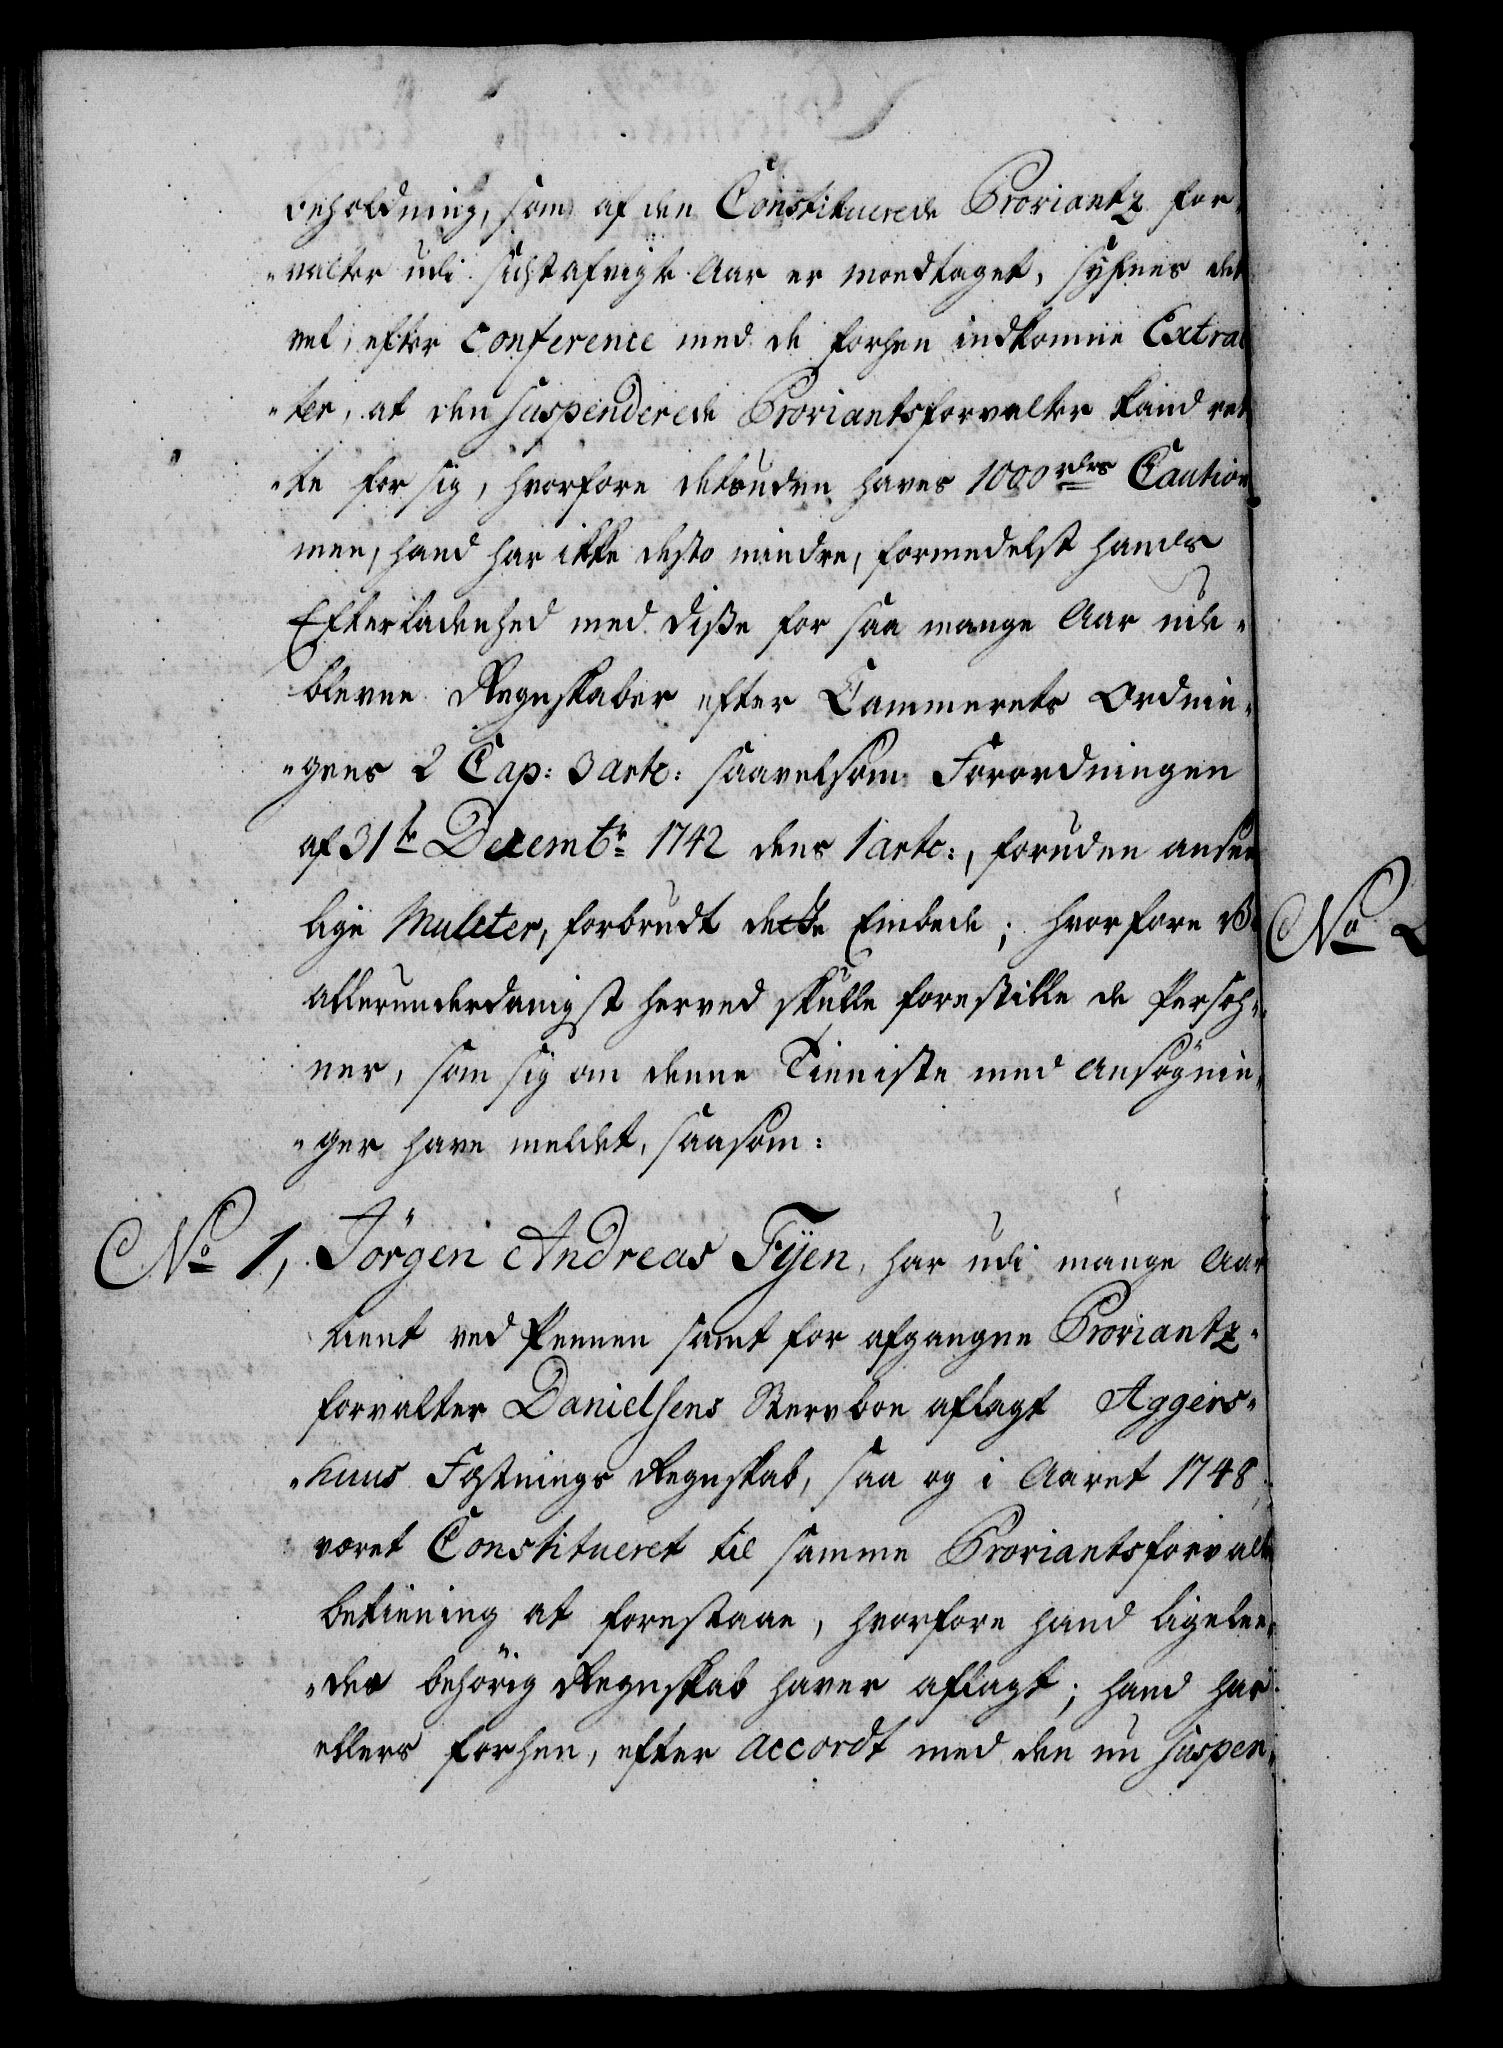 beholdning, som af den Constituerede Proviantz for-
-valter udi sidstafvigte Aar er modtaget, synes det
vel, efter Conference med de forhen indkomne Extrac
-ter, at den suspenderede Proviantsforvalter kand ret
-te for sig, hvorfore desuden haves 1000 rdrs Caution
men, hand har ikke desto mindre, formedelst hands
Efterladenhed med disse for saa mange Aar ude-
blevne Regnskaber efter Cammerets Ordnin-
-gens 2 Cap: 3 artc: saavelsom Forordningen
af 31te Decembr 1742 dens 1 artc:, foruden anseen
lige Mulcter, forbrudt dette Embede; hvorfore vi
allerunderdanigst herved skulle forestille de Persoh-
ner, som sig om denne Tienniste med Ansøgnin-
-ger have meldet, saasom:
No 1, Jörgen Andreas Fÿen, har udi mange Aar
tient ved Pennen samt for afgangne Proviantz-
forvalter Danielsens Stervboe aflagt Aggers-
-huus Fæstnings Regnskab, saa og i Aaret 1748
været Constitueret til samme Proviantsforvalter
betiening at forestaae, hvorfore hand ligelee-
-des behörig Regnskab haver aflagt; hand har
ellers forhen, efter accordt med den nu suspen-
No 2